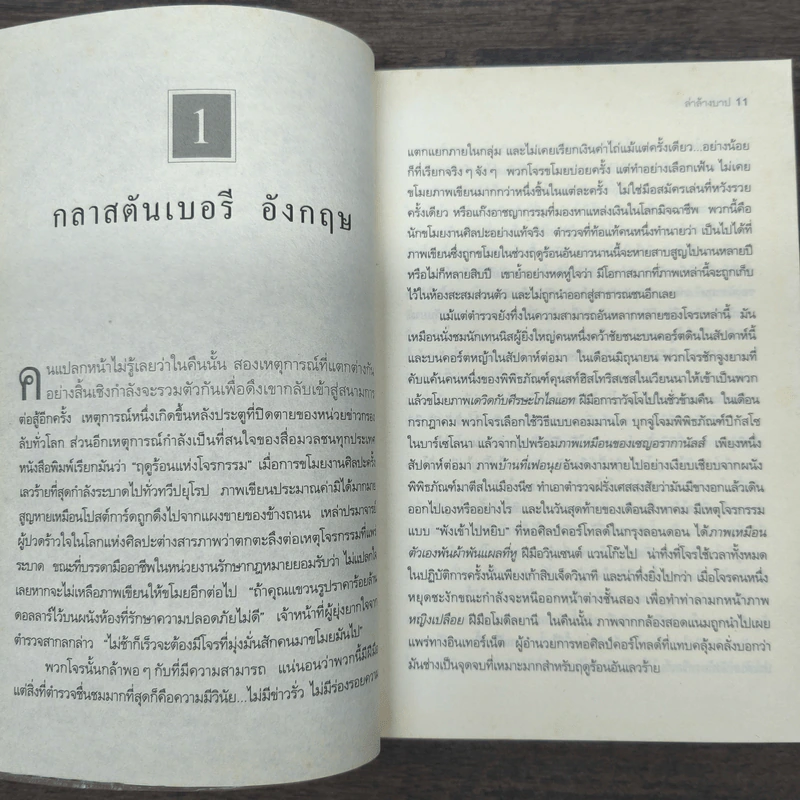 1
กลาสตันเบอรี อังกฤษ
คนแปลกหน้าไม่รู้เลยว่าในคืนนั้น สองเหตุการณ์ที่แตกต่างกัน
อย่างสิ้นเชิงกำลังจะรวมตัวกันเพื่อดึงเขากลับเข้าสู่สนามการ
ต่อสู้อีกครั้ง เหตุการณ์หนึ่งเกิดขึ้นหลังประตูที่ปิดตายของหน่วยข่าวกรอง
ลับทั่วโลก ส่วนอีกเหตุการณ์กำลังเป็นที่สนใจของสื่อมวลชนทุกประเทศ
หนังสือพิมพ์เรียกมันว่า “ฤดูร้อนแห่งโจรกรรม” เมื่อการขโมยงานศิลปะครั้ง
เลวร้ายที่สุดกำลังระบาดไปทั่วทวีปยุโรป ภาพเขียนประมาณค่ามิได้มากมาย
สูญหายเหมือนโปสต์การ์ดถูกดึงไปจากแผงขายของข้างถนน เหล่าปรมาจารย์
ผู้ปวดร้าวใจในโลกแห่งศิลปะต่างสารภาพว่าตกตะลึงต่อเหตุโจรกรรมที่แพร่
ระบาด ขณะที่บรรดามืออาชีพในหน่วยงานรักษากฎหมายยอมรับว่า ไม่แปลกใจ
เลยหากจะไม่เหลือภาพเขียนให้ขโมยอีกต่อไป “ถ้าคุณแขวนรูปราคาร้อยล้าน
ดอลลาร์ไว้บนผนังห้องที่รักษาความปลอดภัยไม่ดี” เจ้าหน้าที่ผู้ยุ่งยากใจจาก
ตำรวจสากลกล่าว “ไม่ช้าก็เร็วจะต้องมีโจรที่มุ่งมั่นสักคนมาขโมยมันไป”
พวกโจรนั้นกล้าพอๆ กับที่มีความสามารถ แน่นอนว่าพวกนี้มีฝีมือ
แต่สิ่งที่ตำรวจชื่นชมมากที่สุดก็คือความมีวินัย...ไม่มีข่าวรั่ว ไม่มีร่องรอยความ
ล่าล้างบาป 11
แตกแยกภายในกลุ่ม และไม่เคยเรียกเงินค่าไถ่แม้แต่ครั้งเดียว...อย่างน้อย
ก็ที่เรียกจริงๆ จังๆ พวกโจรขโมยบ่อยครั้ง แต่ทำอย่างเลือกเฟ้น ไม่เคย
ขโมยภาพเขียนมากกว่าหนึ่งชิ้นในแต่ละครั้ง ไม่ใช่มือสมัครเล่นที่หวังรวย
ครั้งเดียว หรือแก๊งอาชญากรรมที่มองหาแหล่งเงินในโลกมิจฉาชีพ พวกนี้คือ
นักขโมยงานศิลปะอย่างแท้จริง ตำรวจที่ท้อแท้คนหนึ่งทำนายว่า เป็นไปได้ที่
ภาพเขียนซึ่งถูกขโมยในช่วงฤดูร้อนอันยาวนานนี้จะหายสาบสูญไปนานหลายปี
หรือไม่ก็หลายสิบปี เขาย้ำอย่างหดหู่ใจว่า มีโอกาสมากที่ภาพเหล่านี้จะถูกเก็บ
ไว้ในห้องสะสมส่วนตัว และไม่ถูกนำออกสู่สาธารณชนอีกเลย
แม้แต่ตำรวจยังทึ่งในความสามารถอันหลากหลายของโจรเหล่านี้ มัน
เหมือนนั่งชมนักเทนนิสผู้ยิ่งใหญ่คนหนึ่งคว้าชัยชนะบนคอร์ตดินในสัปดาห์นี้
และบนคอร์ตหญ้าในสัปดาห์ต่อมา ในเดือนมิถุนายน พวกโจรชักจูงยามที่
คับแค้นคนหนึ่งของพิพิธภัณฑ์คุนสท์ฮิสโทริสเชสในเวียนนาให้เข้าเป็นพวก
แล้วขโมยภาพเดวิดกับศีรษะโกไลแอท ฝีมือคาราวัจโจไปในชั่วข้ามคืน ในเดือน
กรกฎาคม พวกโจรเลือกใช้วิธีแบบคอมมานโด บุกจู่โจมพิพิธภัณฑ์ปิกัสโซ
ในบาร์เซโลนา แล้วจากไปพร้อมภาพเหมือนของเซญอรากานัลส์ เพียงหนึ่ง
สัปดาห์ต่อมา ภาพบ้านที่เฟอนุยอันงดงามหายไปอย่างเงียบเชียบจากผนัง
พิพิธภัณฑ์มาตีสในเมืองนีซ ทำเอาตำรวจฝรั่งเศสสงสัยว่ามันมีขางอกแล้วเดิน
ออกไปเองหรืออย่างไร และในวันสุดท้ายของเดือนสิงหาคม มีเหตุโจรกรรม
แบบ “พังเข้าไปหยิบ” ที่หอศิลป์คอร์โทลด์ในกรุงลอนดอน ได้ภาพเหมือน
ตัวเองพันผ้าพันแผลที่หู ฝีมือวินเซนต์ แวนโก๊ะไป น่าทึ่งที่โจรใช้เวลาทั้งหมด
ในปฏิบัติการครั้งนั้นเพียงเก้าสิบเจ็ดวินาที และน่าทึ่งยิ่งไปกว่า เมื่อโจรคนหนึ่ง
หยุดชะงักขณะกำลังจะหนีออกหน้าต่างชั้นสอง เพื่อทำท่าลามกหน้าภาพ
หญิงเปลือย ฝีมือโมดีลยานี ในคืนนั้น ภาพจากกล้องสอดแนมถูกนำไปเผย
แพร่ทางอินเทอร์เน็ต ผู้อำนวยการหอศิลป์คอร์โทลด์ที่แทบคลุ้มคลั่งบอกว่า
มันช่างเป็นจุดจบที่เหมาะมากสำหรับฤดูร้อนอันเลวร้าย